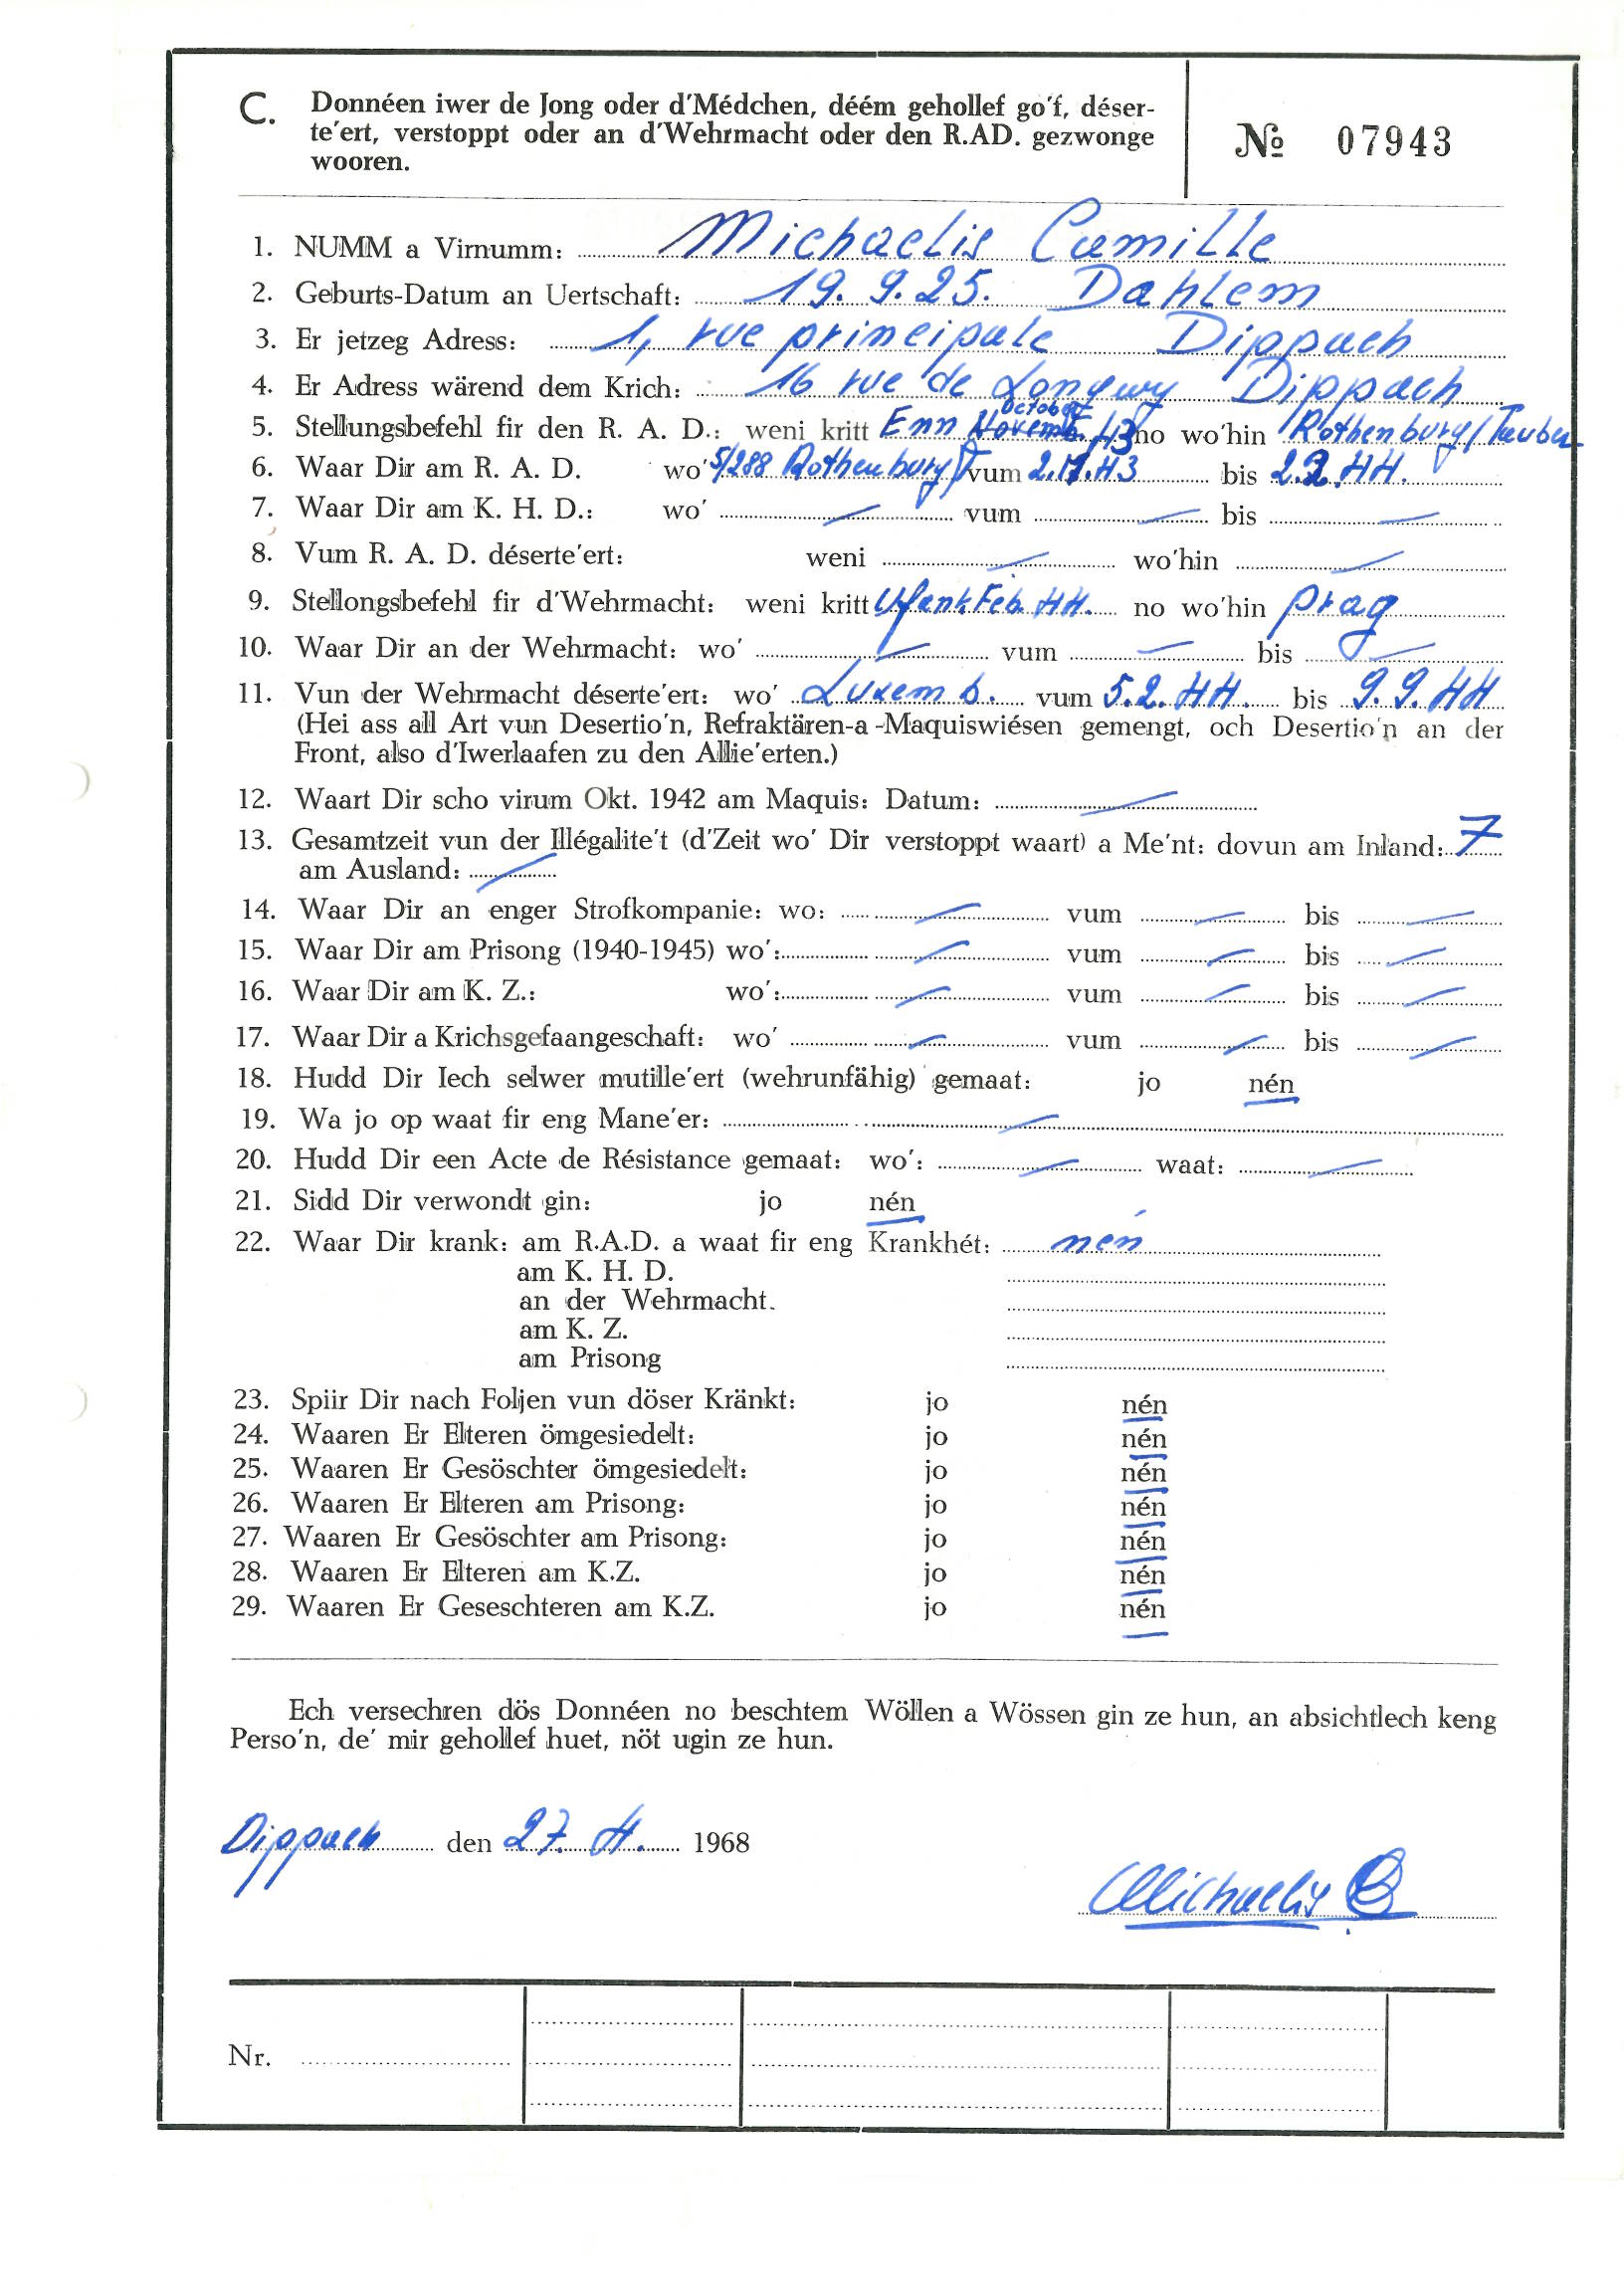 C. Donnéen iwer de Jong oder d'Médchen, déém gehollef go'f, déser-
te'ert, verstoppt oder an d'Wehrmacht oder den R.AD. gezwonge
wooren.
№ 07943
1. NUMM a Virnumm: Michaelis Camille
2. Geburts-Datum an Uertschaft: 19. 9. 25. Dahlem
3. Er jetzeg Adress: 1, rue principale Dippach
4. Er Adress wärend dem Krich: 16 rue de Longwy Dippach
October
5. Stellungsbefehl fir den R. A. D.: weni kritt Enn Novemb. 43 no wo'hin Rothenburg/Tauber
6. Waar Dir am R. A. D. wo' 5/288 Rothenburg/T vum 2.11.43 bis 2.2.44.
7. Waar Dir am K. H. D.: wo' — vum — bis —
8. Vum R. A. D. déserte'ert: weni — wo'hin —
9. Stellongsbefehl fir d'Wehrmacht: weni kritt Ufank Feb. 44. no wo'hin Prag
10. Waar Dir an der Wehrmacht: wo' — vum — bis —
11. Vun der Wehrmacht déserte'ert: wo' Luxemb. vum 5.2.44. bis 9.9.44
(Hei ass all Art vun Desertio'n, Refraktären-a -Maquiswiésen gemengt, och Desertio'n an der
Front, also d'Iwerlaafen zu den Allie'erten.)
12. Waart Dir scho virum Okt. 1942 am Maquis: Datum: —
13. Gesamtzeit vun der Illégalite't (d'Zeit wo' Dir verstoppt waart) a Me'nt: dovun am Inland: 7
am Ausland: —
14. Waar Dir an enger Strofkompanie: wo: — vum — bis —
15. Waar Dir am Prisong (1940-1945) wo': — vum — bis —
16. Waar Dir am K. Z.: wo': — vum — bis —
17. Waar Dir a Krichsgefaangeschaft: wo' — vum — bis —
18. Hudd Dir Iech selwer mutille'ert (wehrunfähig) gemaat: jo nén
19. Wa jo op waat fir eng Mane'er: —
20. Hudd Dir een Acte de Résistance gemaat: wo': — waat: —
21. Sidd Dir verwondt gin: jo nén
22. Waar Dir krank: am R.A.D. a waat fir eng Krankhét: nén
am K. H. D.
an der Wehrmacht.
am K. Z.
am Prisong
23. Spiir Dir nach Foljen vun döser Kränkt: jo nén
24. Waaren Er Elteren ömgesiedelt: jo nén
25. Waaren Er Gesöschter ömgesiedelt: jo nén
26. Waaren Er Elteren am Prisong: jo nén
27. Waaren Er Gesöschter am Prisong: jo nén
28. Waaren Er Elteren am K.Z. jo nén
29. Waaren Er Geseschteren am K.Z. jo nén
Ech versechren dös Donnéen no beschtem Wöllen a Wössen gin ze hun, an absichtlech keng
Perso'n, de' mir gehollef huet, nöt ugin ze hun.
Dippach den 27. 4. 1968
Michaelis C
Nr.